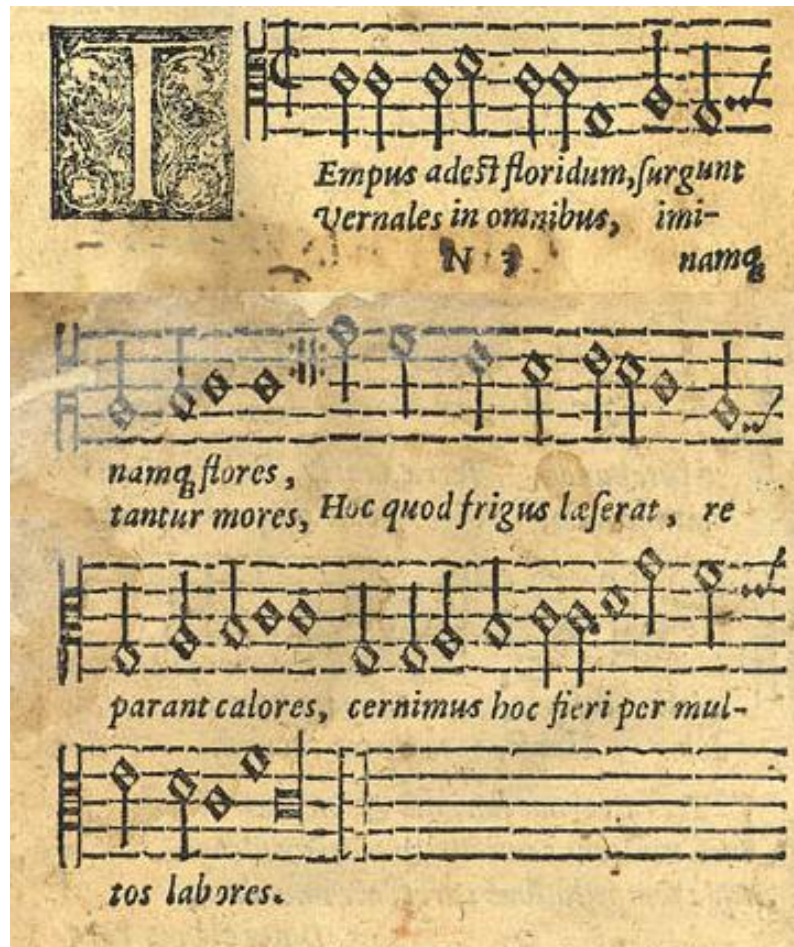 TEmpus adeſt floridum, ſurgunt
Vernales in omnibus, imi-
N 3 namꝗ
namꝗ flores,
tantur mores, Hoc quod frigus læſerat, re
parant calores, cernimus hoc fieri per mul-
tos labores.